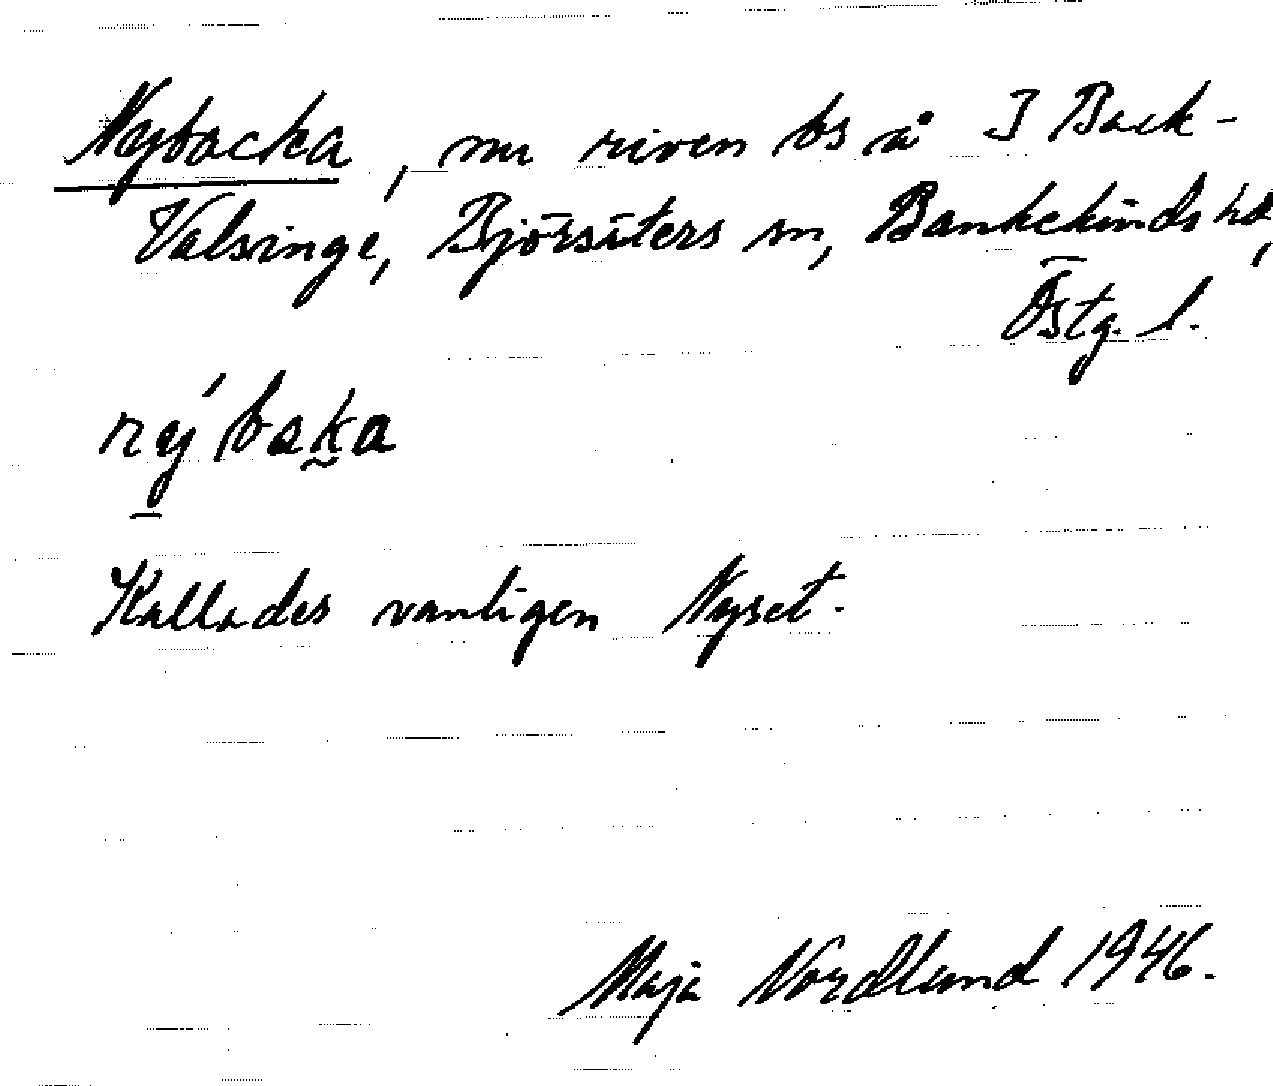 Nybacka, nu riven bs å I Back-
Valsvinge, Björsäters sn, Bankekinds hd,
Östg. l.
nýbaka
Kallades vanligen Nyset.
Maja Nordlund 1946.